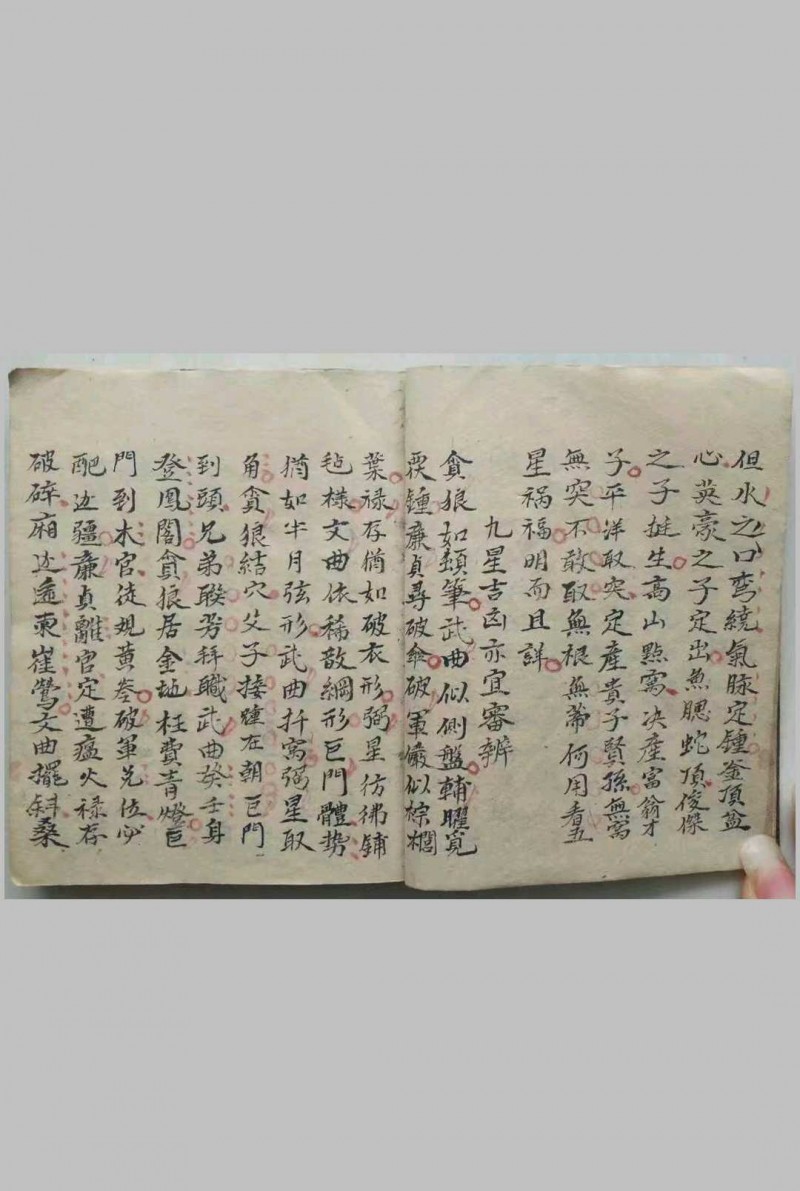 但水之口弯繞氣脉定鍾釜頂盆
心英豪之子定出魚腮蛇頂俊傑
之子挺生高山點窩决產富翁才
子平洋取突定產貴子賢孫無窩
無突不敢取無根無蒂何用看五
星祸福明而且詳
九星吉凶亦宜審辨
貪狼如頓筆武曲似側盤輔曜覓
鍾廉貞尋破傘破軍儼似棕櫚
葉禄存猶如破衣形弼星彷彿鋪
毡様文曲依稀散網形巨門體势
猶如半月弦形武曲扦窩弼星取
角貪狼結穴父子接踵在朝巨門
到頭兄弟聨芳拜職武曲癸壬身
登鳳閣貪狼居金地枉費青燈巨
門到木宮徒規黄卷破軍兑位必
配边疆廉貞離宮定遭瘟火禄存
破碎廂边遥東崔鶯文曲擺斜桑